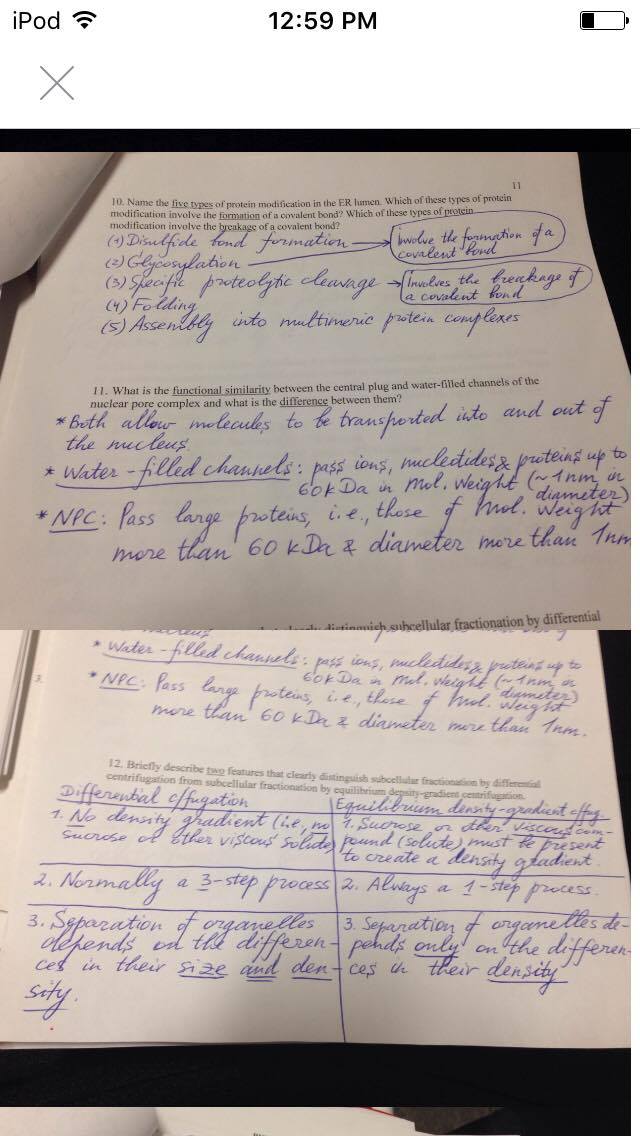 iPod
12:59 PM
11
10. Name the five types of protein modification in the ER lumen. Which of these types of protein
modification involve the formation of a covalent bond? Which of these types of protein
modification involve the breakage of a covalent bond?
(1) Disulfide bond formation → Involve the formation of a
(2) Glycosylation covalent bond
(3) Specific proteolytic cleavage → Involves the breakage of
a covalent bond
(4) Folding
(5) Assembly into multimeric protein complexes
11. What is the functional similarity between the central plug and water-filled channels of the
nuclear pore complex and what is the difference between them?
* Both allow molecules to be transported into and out of
the nucleus.
* Water-filled channels: pass ions, nucleotides & proteins up to
60 kDa in mol. weight (~1nm in
diameter)
* NPC: Pass large proteins, i.e., those of mol. weight
more than 60 kDa & diameter more than 1nm
distinguish subcellular fractionation by differential
nucleus
* Water-filled channels: pass ions, nucleotides & proteins up to
60 kDa in mol. weight (~1nm in
diameter)
* NPC: Pass large proteins, i.e., those of mol. weight
more than 60 kDa & diameter more than 1nm.
3.
12. Briefly describe two features that clearly distinguish subcellular fractionation by differential
centrifugation from subcellular fractionation by equilibrium density-gradient centrifugation.
Differential c/fugation
1. No density gradient (i.e., no
sucrose or other viscous solute)
2. Normally a 3-step process
3. Separation of organelles
depends on the differen-
ces in their size and den-
sity.
Equilibrium density-gradient c/fug
1. Sucrose or other viscous com-
pound (solute) must be present
to create a density gradient.
2. Always a 1-step process.
3. Separation of organelles de-
pends only on the differen-
ces in their density